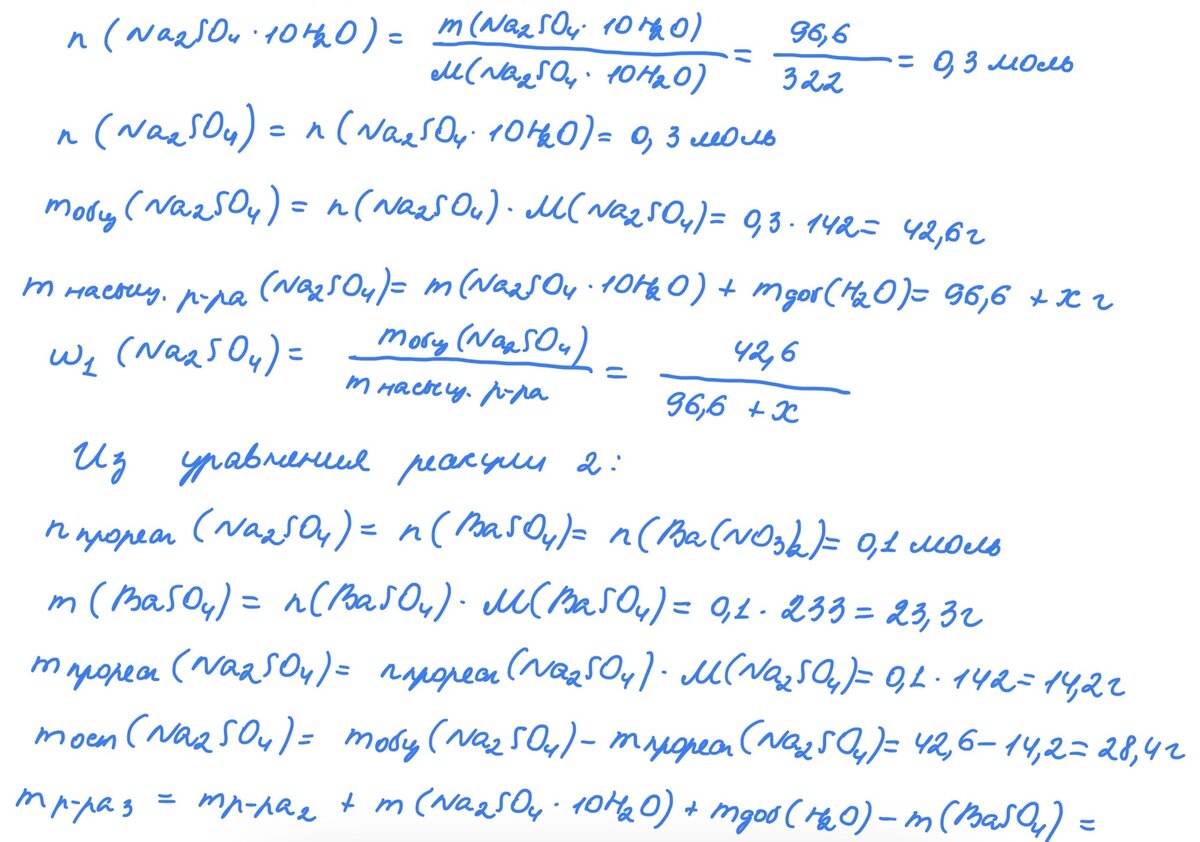 n (Na₂SO₄ · 10H₂O) = m(Na₂SO₄ · 10H₂O) / M(Na₂SO₄ · 10H₂O) = 96,6 / 322 = 0,3 моль
n (Na₂SO₄) = n (Na₂SO₄ · 10H₂O) = 0,3 моль
m общ (Na₂SO₄) = n(Na₂SO₄) · M(Na₂SO₄) = 0,3 · 142 = 42,6 г
m насыщ. р-ра (Na₂SO₄) = m(Na₂SO₄ · 10H₂O) + m доб (H₂O) = 96,6 + x г
ω₁ (Na₂SO₄) = m общ (Na₂SO₄) / m насыщ. р-ра = 42,6 / 96,6 + x
Из уравнения реакции 2:
n прореаг (Na₂SO₄) = n (BaSO₄) = n (Ba(NO₃)₂) = 0,1 моль
m (BaSO₄) = n(BaSO₄) · M(BaSO₄) = 0,1 · 233 = 23,3 г
m прореаг (Na₂SO₄) = n прореаг (Na₂SO₄) · M(Na₂SO₄) = 0,1 · 142 = 14,2 г
m ост (Na₂SO₄) = m общ (Na₂SO₄) – m прореаг (Na₂SO₄) = 42,6 – 14,2 = 28,4 г
m р-ра 3 = m р-ра 2 + m (Na₂SO₄ · 10H₂O) + m доб (H₂O) – m (BaSO₄) =